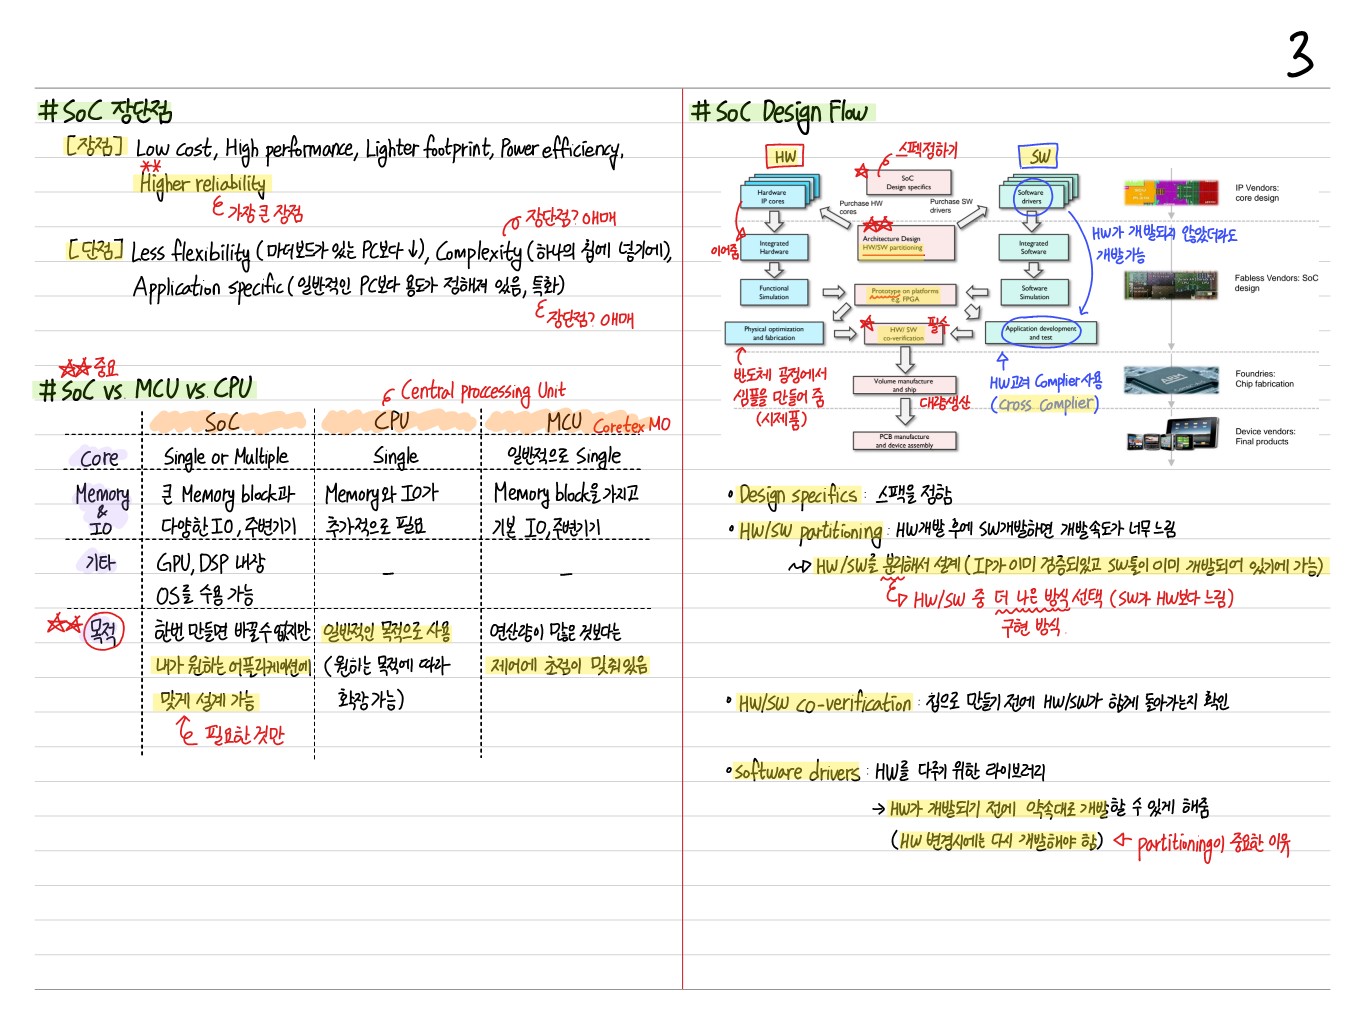 3
# SoC 장단점
[장점] Low cost, High performance, Lighter footprint, Power efficiency,
Higher reliability
가장 큰 장점
장단점? 애매
[단점] Less flexibility (마더보드가 있는 PC보다 ↓), Complexity (하나의 칩에 넣기에),
Application specific (일반적인 PC보다 용도가 정해져 있음, 특화)
장단점? 애매
중요
# SoC vs. MCU vs CPU
Central Processing Unit
SoC CPU MCU Coretex M0
Core Single or Multiple Single 일반적으로 Single
Memory & IO
큰 Memory block과
다양한 IO, 주변기기
Memory와 IO가
추가적으로 필요
Memory block을 가지고
기본 IO, 주변기기
기타
GPU, DSP 내장
OS를 수용 가능
–
–
목적
한번 만들면 바꿀수 없지만
내가 원하는 어플리케이션에
맞게 설계 가능
필요한 것만
일반적인 목적으로 사용
(원하는 목적에 따라
확장 가능)
연산량이 많은 것보다는
제어에 초점이 맞춰있음
# SoC Design Flow
HW
스펙정하기
SW
Hardware
IP cores
SoC
Design specifics
Software
drivers
Purchase HW
cores
Purchase SW
drivers
IP Vendors:
core design
이어줌
Integrated
Hardware
Architecture Design
HW/SW partitioning
Integrated
Software
HW가 개발되지 않았더라도
개발 가능
Functional
Simulation
Prototype on platforms
e.g. FPGA
Software
Simulation
Fabless Vendors: SoC
design
필수
Physical optimization
and fabrication
HW/ SW
co-verification
Application development
and test
반도체 공정에서
샘플을 만들어 줌
(시제품)
Volume manufacture
and ship
대량생산
HW고려 Complier 사용
(Cross Complier)
Foundries:
Chip fabrication
ARM
PCB manufacture
and device assembly
Device vendors:
Final products
• Design specifics : 스팩을 정함
• HW/SW partitioning : HW개발 후에 SW개발하면 개발속도가 너무 느림
~> HW/SW를 분리해서 설계 (IP가 이미 검증되있고 SW툴이 이미 개발되어 있기에 가능)
HW/SW 중 더 나은 방식 선택 (SW가 HW보다 느림)
구현 방식
• HW/SW co-verification : 칩으로 만들기 전에 HW/SW가 함께 돌아가는지 확인
• software drivers : HW를 다루기 위한 라이브러리
→ HW가 개발되기 전에 약속대로 개발할 수 있게 해줌
(HW 변경시에는 다시 개발해야 함) ← partitioning이 중요한 이유